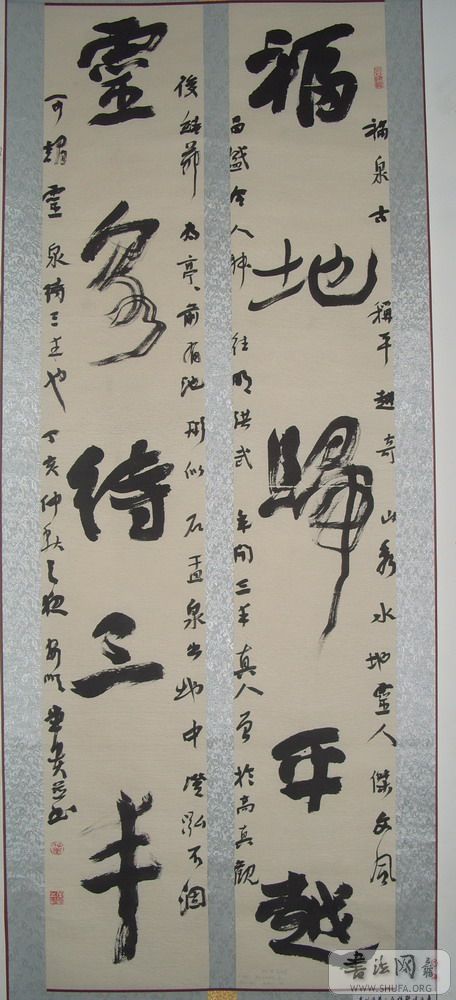 福地歸平越
福泉古稱平越奇山秀水地靈人傑文風
而盛令人神往明洪武年間三丰真人曾於高真觀
靈泉待三丰
後結茅為亭前有池形似石盂泉出地中澄泓不涸
可謂靈泉待三丰也丁亥仲秋之夜
書法网
WWW.SHUFA.ORG